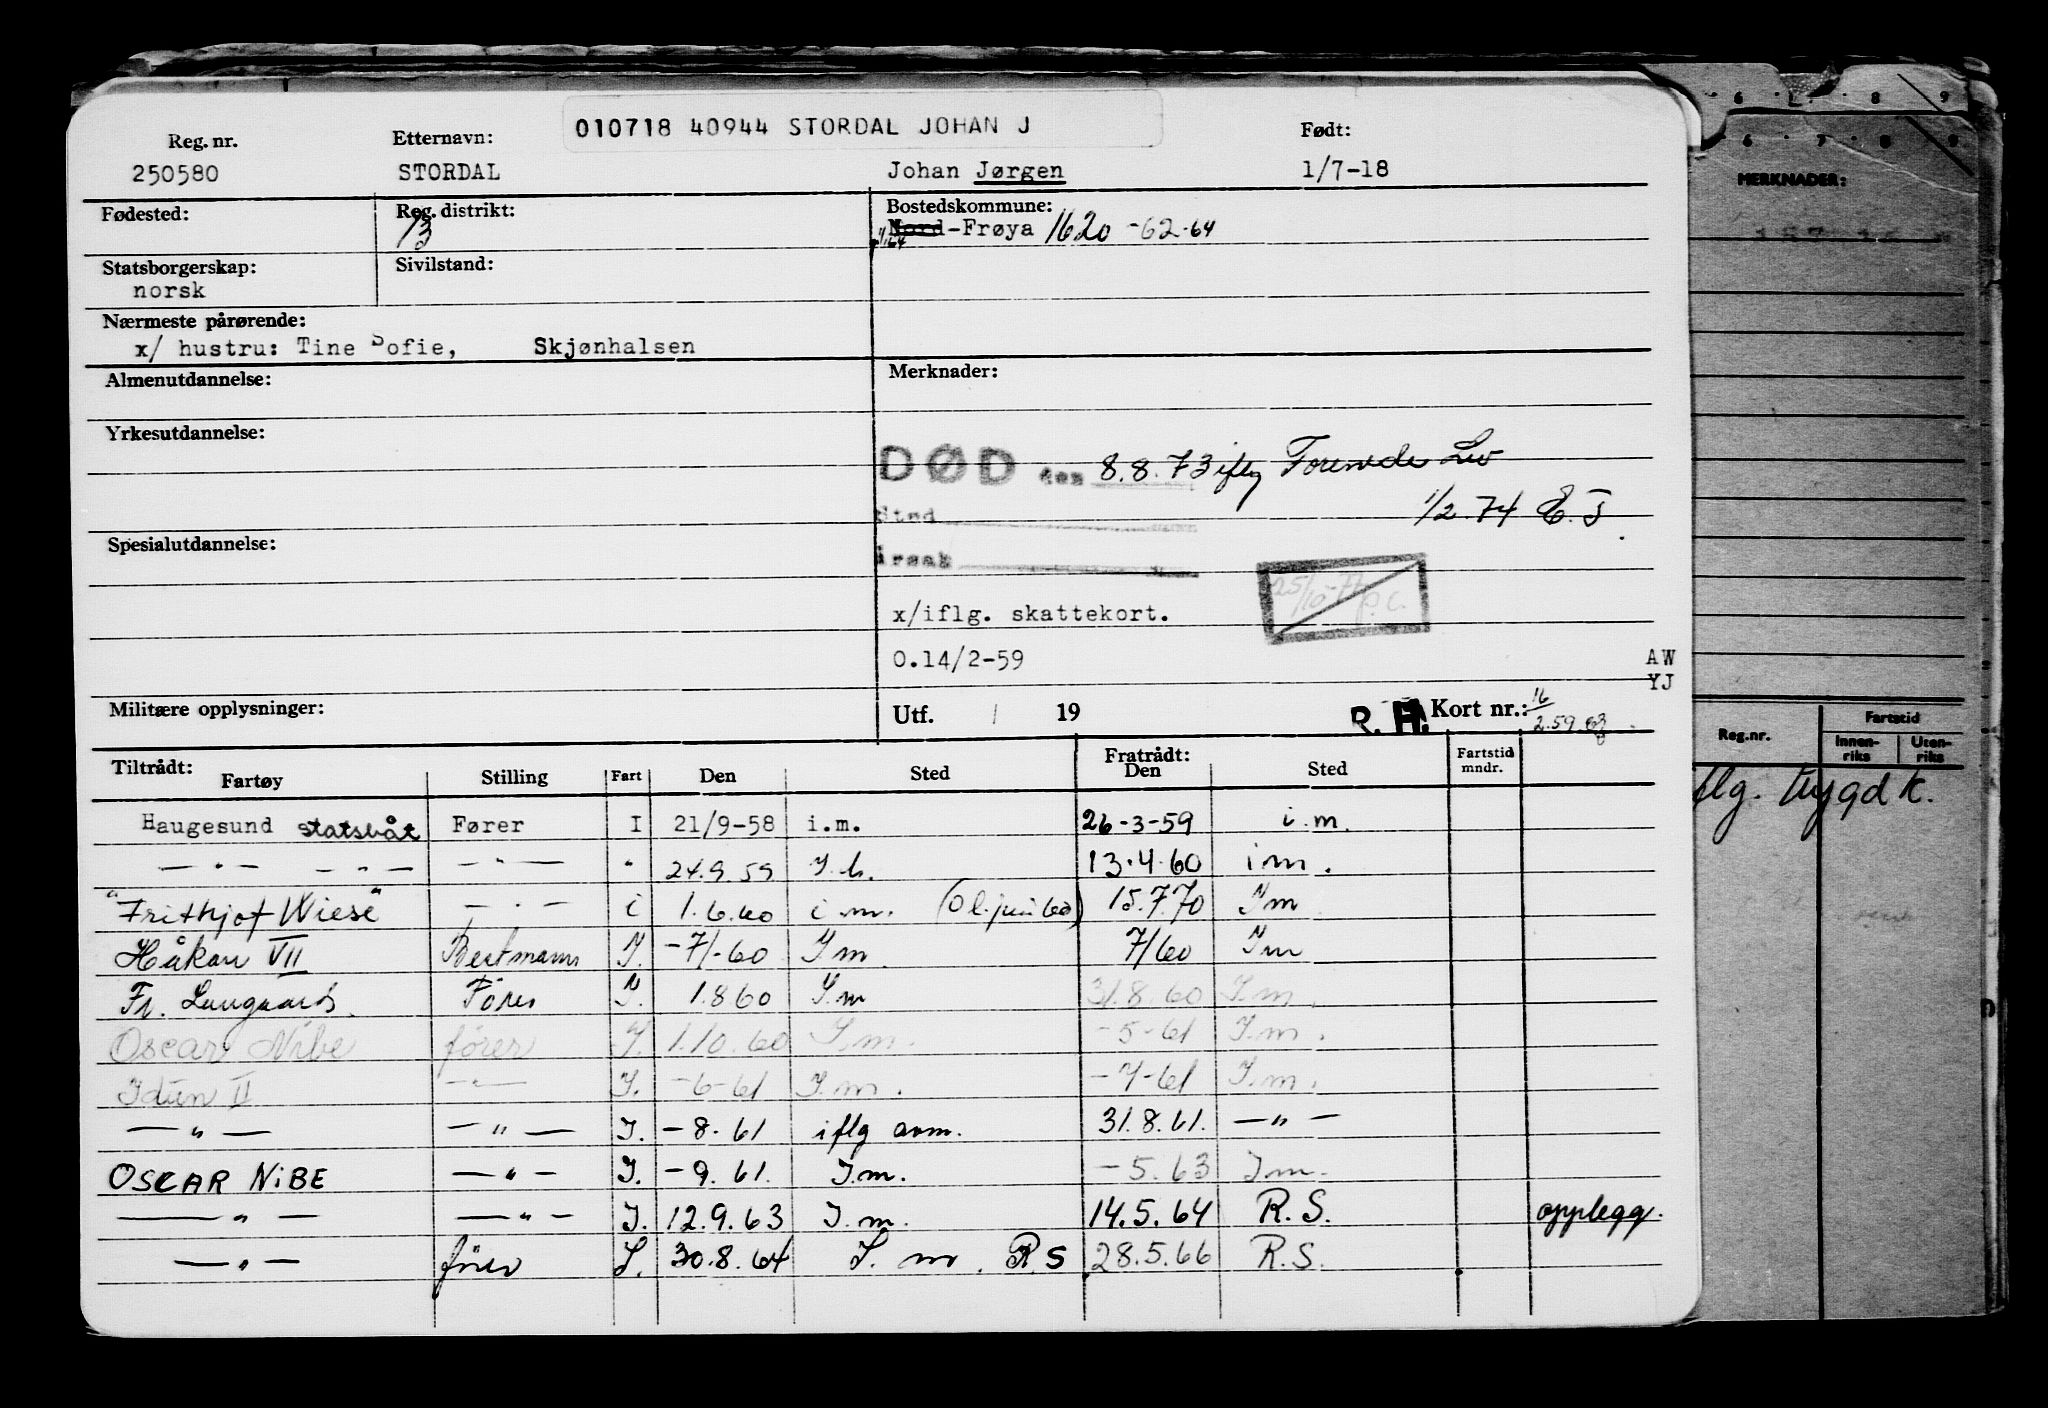 010718 40944 STORDAL JOHAN J
Reg. nr. Etternavn: Født:
250580 STORDAL Johan Jørgen 1/7-18
Fødested: Reg. distrikt: Bostedskommune:
13 Nord-Frøya 1620 -62-64
1/1.64
Statsborgerskap: Sivilstand:
norsk
Nærmeste pårørende:
x/ hustru: Tine Sofie, Skjønhalsen
Almenutdannelse: Merknader:
Yrkesutdannelse:
DØD den 8.8.73 iflg Forende Liv
1/2-74 E.J
Sted
Spesialutdannelse:
Årsak
25/10-77 P.C.
x/iflg. skattekort.
0.14/2-59 AW
YJ
Militære opplysninger: Utf. / 19 R.H. Kort nr.: 16/2.59
Tiltrådt: Fratrådt:
Fartøy Stilling Fart Den Sted Den Sted Fartstid mndr.
Haugesund statsbåt Fører I 21/9-58 i.m. 26-3-59 i.m.
— " — — " — — " — " 24.9.59 I.m. 13.4.60 i m.
"Frithjof Wiese" — " — i 1.6.60 i.m. (ol. juni 60) 15.7.70 Im
Håkon VII Bestmann I. -7/-60 I m 7/60 Im
Fr. Langaard Fører I. 1.8 60 I.m 31.8.60 I.m.
Oscar Nibe fører I. 1.10.60 I.m. -5-61 I.m.
Idun II — " — I. -6-61 I.m. -7-61 I.m.
— " — — " — I. -8.61 iflg avm. 31.8.61. — " —
OSCAR NIBE — " — I. -9.61. I.m. -5.63 Im.
— " — — " — I. 12.9.63 I.m. 14.5.64 R.S. opplegg.
— " — fører I. 30.8.64 I.m. RS 28.5.66 R.S.
6 7 8 9
MERKNADER:
Reg.nr. Fartstid
Innen-riks Uten-riks
flg. trygd k.